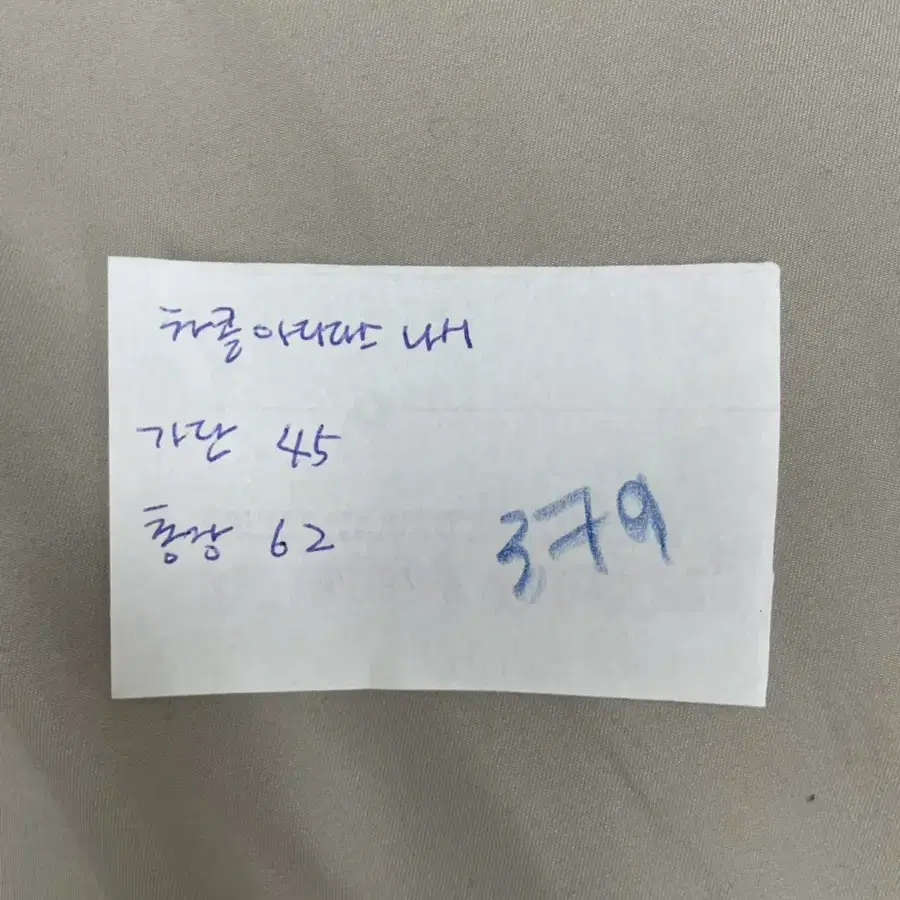 차콜 아디다스 나시
가단 45
총장 62
379